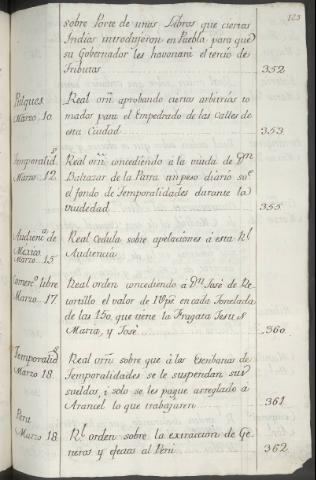 123
sobre Porte de unos Libros que ciertos
Indios introdujeron en Puebla para que
su Gobernador les havonara el tercio de
Tributos 352
Pulques
Marzo 10.
Real orñ. aprobando cierto arbitrios to
mados para el Empedrado de las Calles de
esta Ciudad 353
Temporalid.s
Marzo 12.
Real orñ concediendo a la viuda de Dn
Baltazar de la un peso diario sre
el fondo de Temporalidades durante la
viudedad 355
Audienc.a de
Mexico
Marzo 15
Real Cedula sobre apelaciones á esta Rl
Audiencia
Comerc.o libre
Marzo 17
Real orden concediendo á Dn José de Re
tortillo el valor de en cada Tonelada
de las 150 que tiene la Fragata Jesus
Maria, y José 360
Temporalid.s
Marzo 18.
Real orñ sobre que á los Escribanos de
Temporalidades se le suspendan sus
sueldos, i solo se les pague arreglado a
Arancel lo que trabajaren 361
Peru
Marzo 18.
Rl orden sobre la extraccion de Ge
neros y efectos al Perú 362